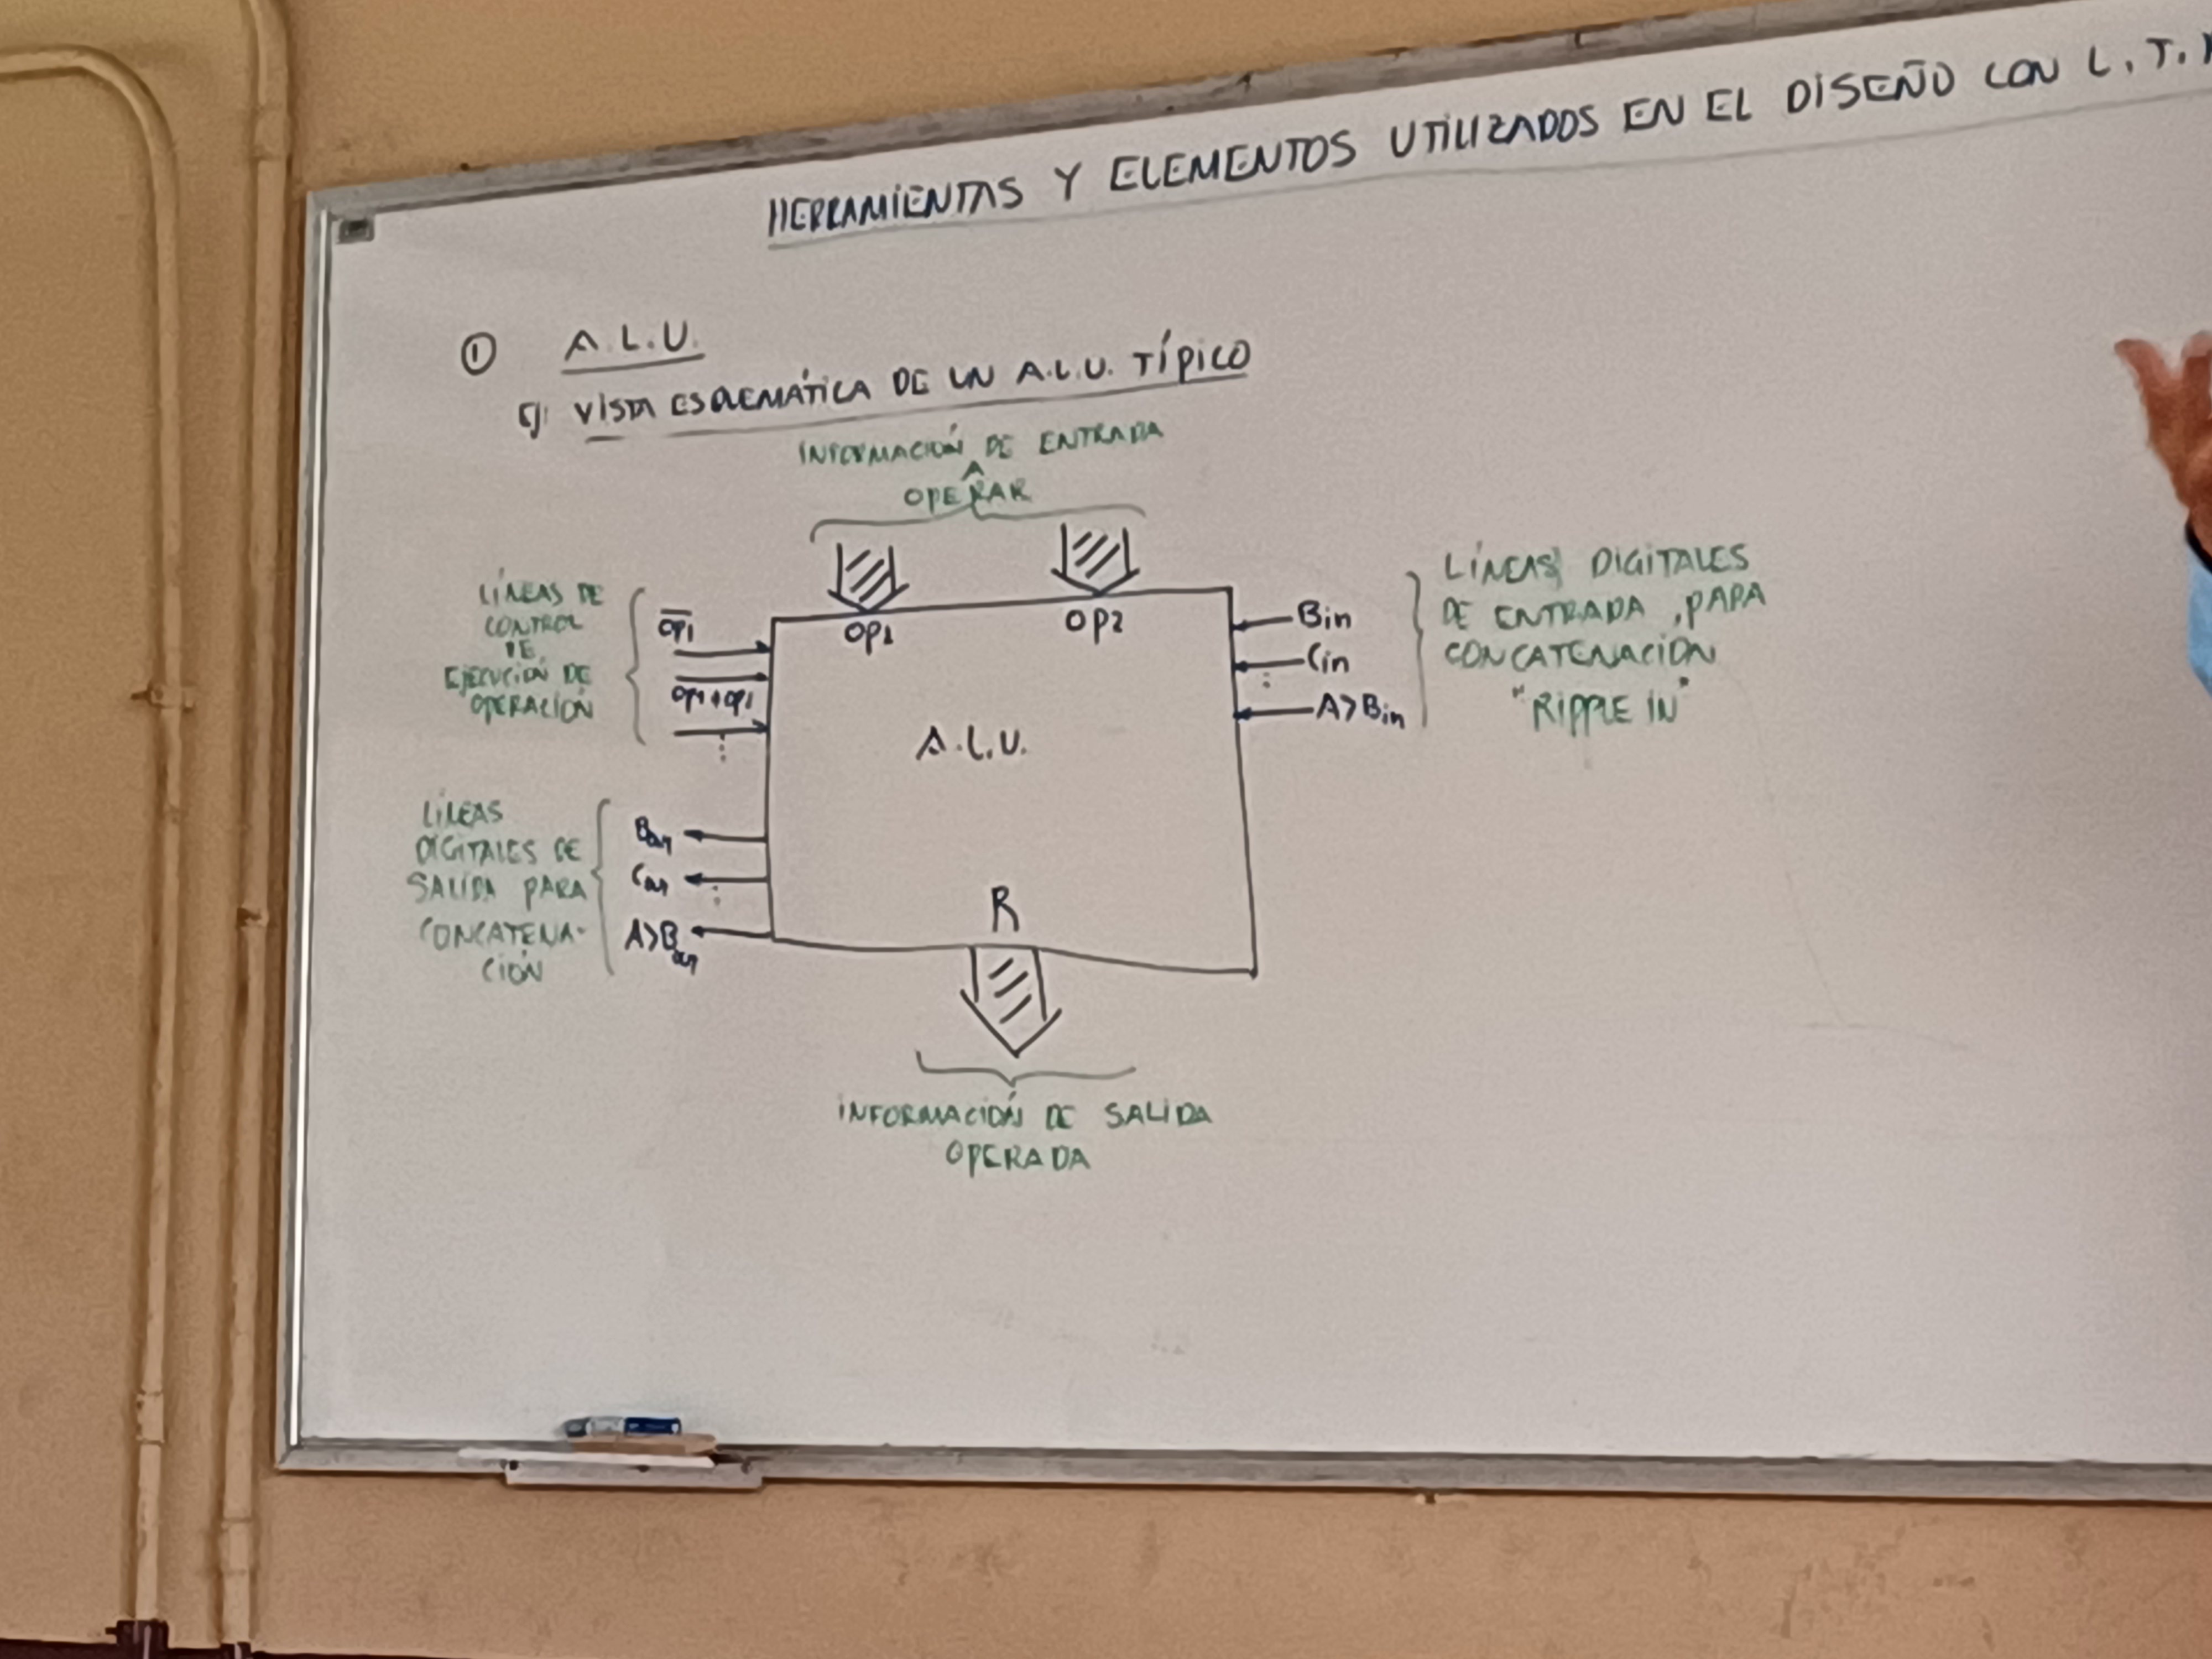 HERRAMIENTAS Y ELEMENTOS UTILIZADOS EN EL DISEÑO CON L.T.
① A.L.U.
VISTA ESQUEMÁTICA DE UN A.L.U. TÍPICO
INFORMACIÓN DE ENTRADA
A
OPERAR
LÍNEAS DE
CONTROL
DE
EJECUCIÓN DE
OPERACIÓN
OP1
OP1+OP1
⋮
OP1
OP2
A.L.U.
R
Bin
Cin
⋮
A>Bin
LÍNEAS DIGITALES
DE ENTRADA, PARA
CONCATENACIÓN
"RIPPLE IN"
LÍNEAS
DIGITALES DE
SALIDA PARA
CONCATENA-
CIÓN
Bout
Cout
⋮
A>Bout
INFORMACIÓN DE SALIDA
OPERADA